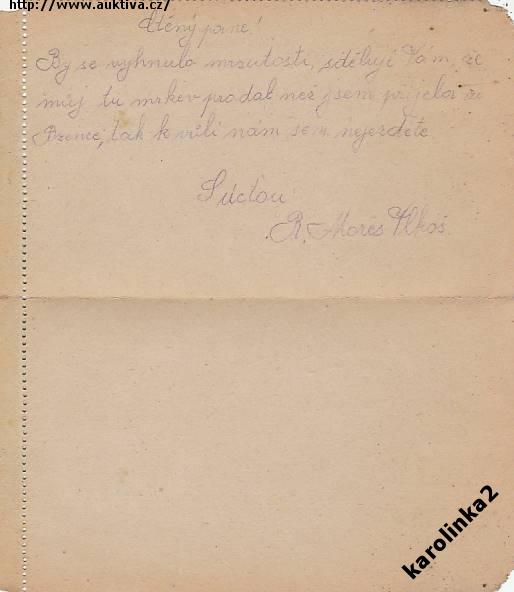 http://www.auktiva.cz/
Ctěný pane!
By se vyhnulo mrzutosti, sděluji Vám, že
můj tu mrkev prodal než jsem přijela ze
Bzence, tak k vůli nám sem nejezděte
S úctou
R. Morés Vlkoš.
karolinka2